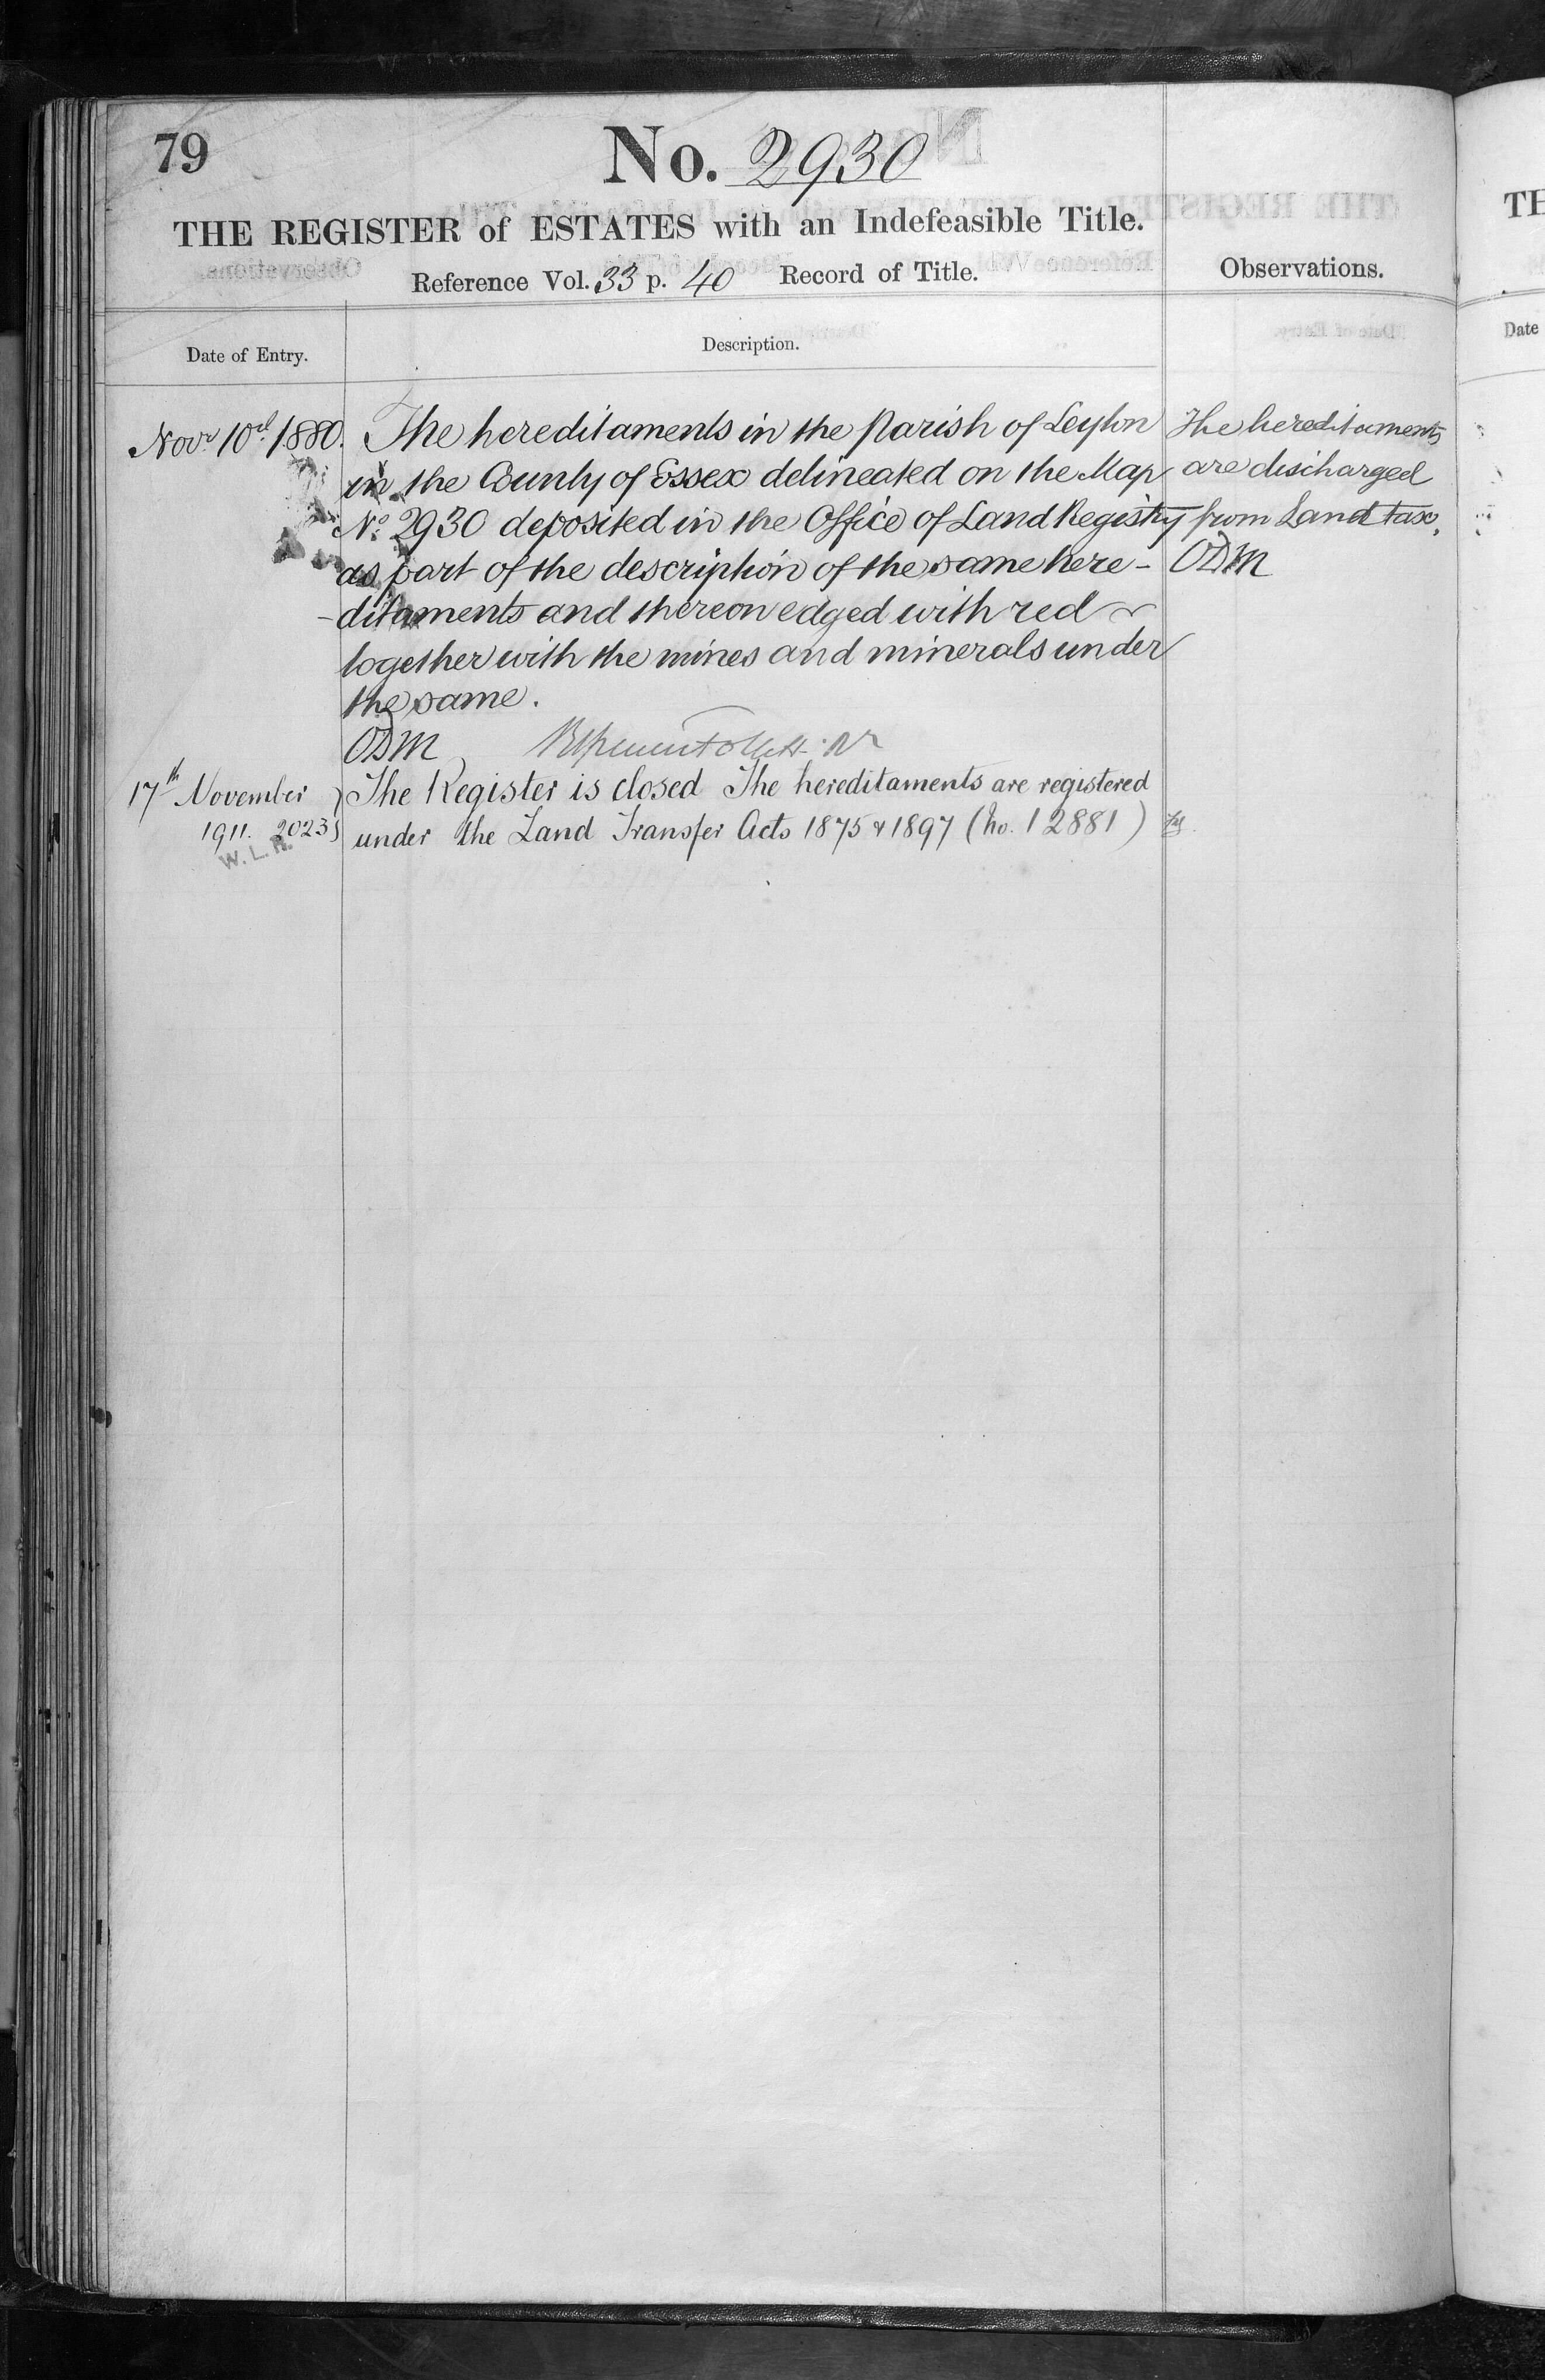 79
No. 2930
THE REGISTER of ESTATES with an Indefeasible Title.
Reference Vol. 33 p. 40 Record of Title.
Observations.
Date of Entry.
Description.
Novr 10th 1880.
The hereditaments in the Parish of Leyton
in the County of Essex delineated on the Map
No. 2930 deposited in the Office of Land Registry
as part of the description of the same here-
-ditaments and thereon edged with red
together with the mines and minerals under
the same.
ODM
The hereditaments
are discharged
from Land tax.
ODM
17th November
1911. 2023
W.L.R.
The Register is closed The hereditaments are registered
under the Land Transfer Acts 1875 & 1897 (No. 12881)
TH
Date